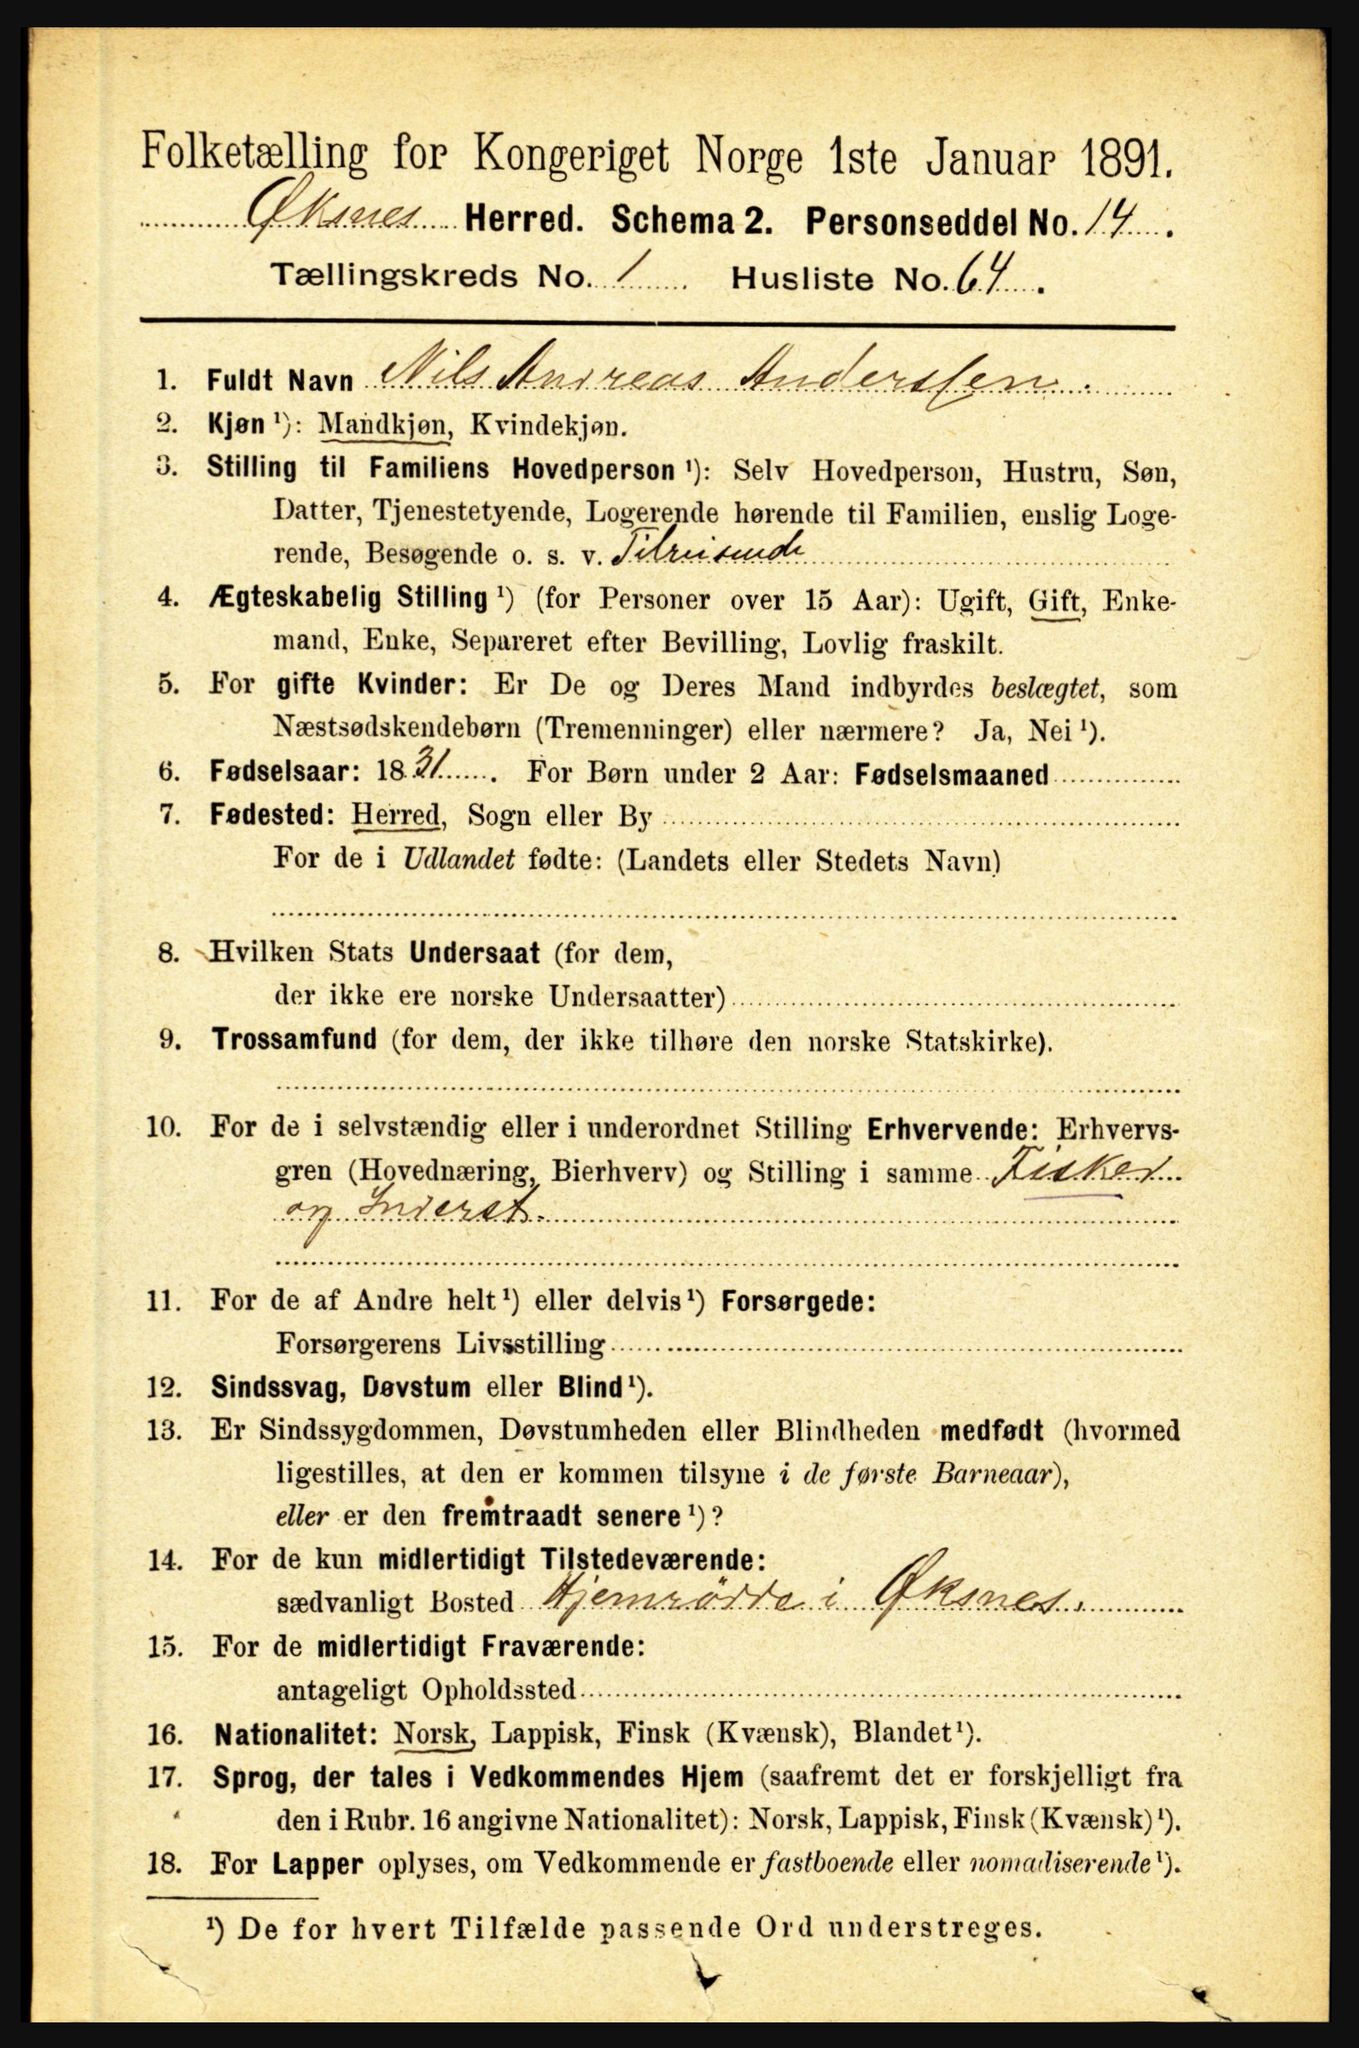 Folketælling for Kongeriget Norge 1ste Januar 1891.
Øksnes Herred. Schema 2. Personseddel No. 14.
Tællingskreds No. 1 Husliste No. 64.
1. Fuldt Navn Nils Andreas Anderssen.
2. Kjøn ¹): Mandkjøn, Kvindekjøn.
3. Stilling til Familiens Hovedperson ¹): Selv Hovedperson, Hustru, Søn,
Datter, Tjenestetyende, Logerende hørende til Familien, enslig Loge-
rende, Besøgende o. s. v. Tilreisende
4. Ægteskabelig Stilling ¹) (for Personer over 15 Aar): Ugift, Gift, Enke-
mand, Enke, Separeret efter Bevilling, Lovlig fraskilt.
5. For gifte Kvinder: Er De og Deres Mand indbyrdes beslægtet, som
Næstsødskendebørn (Tremenninger) eller nærmere? Ja, Nei ¹).
6. Fødselsaar: 1831. For Børn under 2 Aar: Fødselsmaaned
7. Fødested: Herred, Sogn eller By
For de i Udlandet fødte: (Landets eller Stedets Navn)
8. Hvilken Stats Undersaat (for dem,
der ikke ere norske Undersaatter)
9. Trossamfund (for dem, der ikke tilhøre den norske Statskirke).
10. For de i selvstændig eller i underordnet Stilling Erhvervende: Erhvervs-
gren (Hovednæring, Bierhverv) og Stilling i samme Fisker
og Inderst.
11. For de af Andre helt ¹) eller delvis ¹) Forsørgede:
Forsørgerens Livsstilling
12. Sindssvag, Døvstum eller Blind ¹).
13. Er Sindssygdommen, Døvstumheden eller Blindheden medfødt (hvormed
ligestilles, at den er kommen tilsyne i de første Barneaar),
eller er den fremtraadt senere ¹)?
14. For de kun midlertidigt Tilstedeværende:
sædvanligt Bosted i Øksnes.
15. For de midlertidigt Fraværende:
antageligt Opholdssted
16. Nationalitet: Norsk, Lappisk, Finsk (Kvænsk), Blandet ¹).
17. Sprog, der tales i Vedkommendes Hjem (saafremt det er forskjelligt fra
den i Rubr. 16 angivne Nationalitet): Norsk, Lappisk, Finsk (Kvænsk) ¹).
18. For Lapper oplyses, om Vedkommende er fastboende eller nomadiserende ¹).
¹) De for hvert Tilfælde passende Ord understreges.